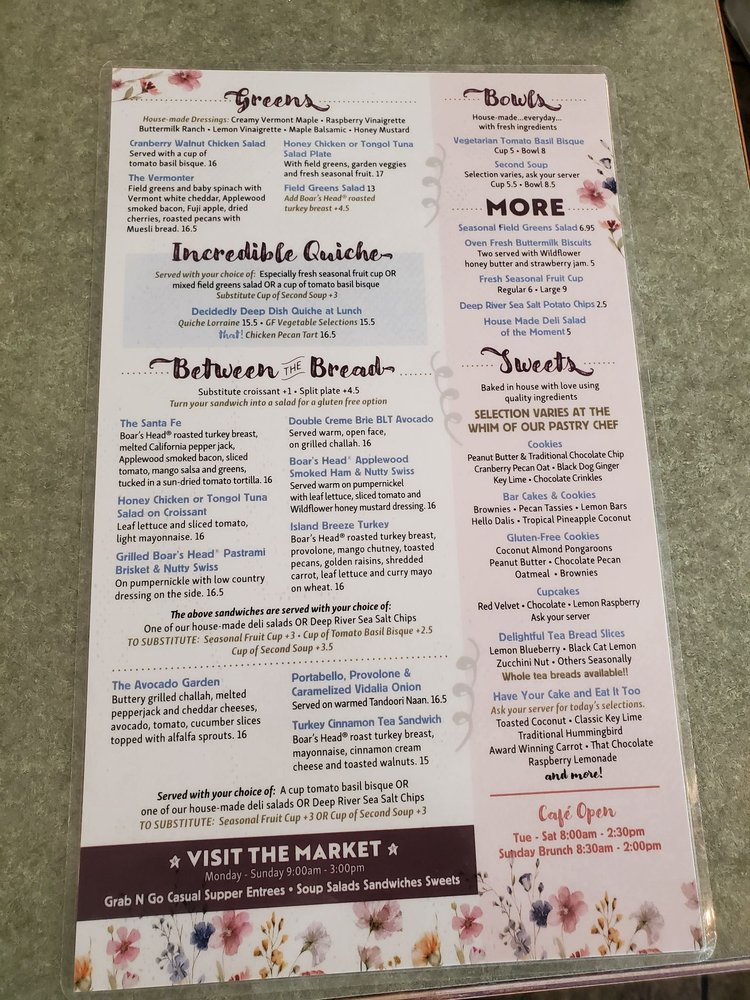 Greens
House-made Dressings: Creamy Vermont Maple • Raspberry Vinaigrette
Buttermilk Ranch • Lemon Vinaigrette • Maple Balsamic • Honey Mustard
Cranberry Walnut Chicken Salad
Served with a cup of
tomato basil bisque. 16
The Vermonter
Field greens and baby spinach with
Vermont white cheddar, Applewood
smoked bacon, Fuji apple, dried
cherries, roasted pecans with
Muesli bread. 16.5
Honey Chicken or Tongol Tuna
Salad Plate
With field greens, garden veggies
and fresh seasonal fruit. 17
Field Greens Salad 13
Add Boar's Head® roasted
turkey breast +4.5
Incredible Quiche
Served with your choice of: Especially fresh seasonal fruit cup OR
mixed field greens salad OR a cup of tomato basil bisque
Substitute Cup of Second Soup +3
Decidedly Deep Dish Quiche at Lunch
Quiche Lorraine 15.5 • GF Vegetable Selections 15.5
that! Chicken Pecan Tart 16.5
Between THE Bread
Substitute croissant +1 • Split plate +4.5
Turn your sandwich into a salad for a gluten free option
The Santa Fe
Boar's Head® roasted turkey breast,
melted California pepper jack,
Applewood smoked bacon, sliced
tomato, mango salsa and greens,
tucked in a sun-dried tomato tortilla. 16
Honey Chicken or Tongol Tuna
Salad on Croissant
Leaf lettuce and sliced tomato,
light mayonnaise. 16
Grilled Boar's Head® Pastrami
Brisket & Nutty Swiss
On pumpernickel with low country
dressing on the side. 16.5
Double Creme Brie BLT Avocado
Served warm, open face,
on grilled challah. 16
Boar's Head® Applewood
Smoked Ham & Nutty Swiss
Served warm on pumpernickel
with leaf lettuce, sliced tomato and
Wildflower honey mustard dressing. 16
Island Breeze Turkey
Boar's Head® roasted turkey breast,
provolone, mango chutney, toasted
pecans, golden raisins, shredded
carrot, leaf lettuce and curry mayo
on wheat. 16
The above sandwiches are served with your choice of:
One of our house-made deli salads OR Deep River Sea Salt Chips
TO SUBSTITUTE: Seasonal Fruit Cup +3 • Cup of Tomato Basil Bisque +2.5
Cup of Second Soup +3.5
The Avocado Garden
Buttery grilled challah, melted
pepperjack and cheddar cheeses,
avocado, tomato, cucumber slices
topped with alfalfa sprouts. 16
Portabello, Provolone &
Caramelized Vidalia Onion
Served on warmed Tandoori Naan. 16.5
Turkey Cinnamon Tea Sandwich
Boar's Head® roast turkey breast,
mayonnaise, cinnamon cream
cheese and toasted walnuts. 15
Served with your choice of: A cup tomato basil bisque OR
one of our house-made deli salads OR Deep River Sea Salt Chips
TO SUBSTITUTE: Seasonal Fruit Cup +3 OR Cup of Second Soup +3
VISIT THE MARKET
Monday - Sunday 9:00am - 3:00pm
Grab N Go Casual Supper Entrees • Soup Salads Sandwiches Sweets
Bowls
House-made...everyday...
with fresh ingredients
Vegetarian Tomato Basil Bisque
Cup 5 • Bowl 8
Second Soup
Selection varies, ask your server
Cup 5.5 • Bowl 8.5
MORE
Seasonal Field Greens Salad 6.95
Oven Fresh Buttermilk Biscuits
Two served with Wildflower
honey butter and strawberry jam. 5
Fresh Seasonal Fruit Cup
Regular 6 • Large 9
Deep River Sea Salt Potato Chips 2.5
House Made Deli Salad
of the Moment 5
Sweets
Baked in house with love using
quality ingredients
SELECTION VARIES AT THE
WHIM OF OUR PASTRY CHEF
Cookies
Peanut Butter & Traditional Chocolate Chip
Cranberry Pecan Oat • Black Dog Ginger
Key Lime • Chocolate Crinkles
Bar Cakes & Cookies
Brownies • Pecan Tassies • Lemon Bars
Hello Dalis • Tropical Pineapple Coconut
Gluten-Free Cookies
Coconut Almond Pongaroons
Peanut Butter • Chocolate Pecan
Oatmeal • Brownies
Cupcakes
Red Velvet • Chocolate • Lemon Raspberry
Ask your server
Delightful Tea Bread Slices
Lemon Blueberry • Black Cat Lemon
Zucchini Nut • Others Seasonally
Whole tea breads available!!
Have Your Cake and Eat It Too
Ask your server for today's selections.
Toasted Coconut • Classic Key Lime
Traditional Hummingbird
Award Winning Carrot • That Chocolate
Raspberry Lemonade
and more!
Café Open
Tue - Sat 8:00am - 2:30pm
Sunday Brunch 8:30am - 2:00pm